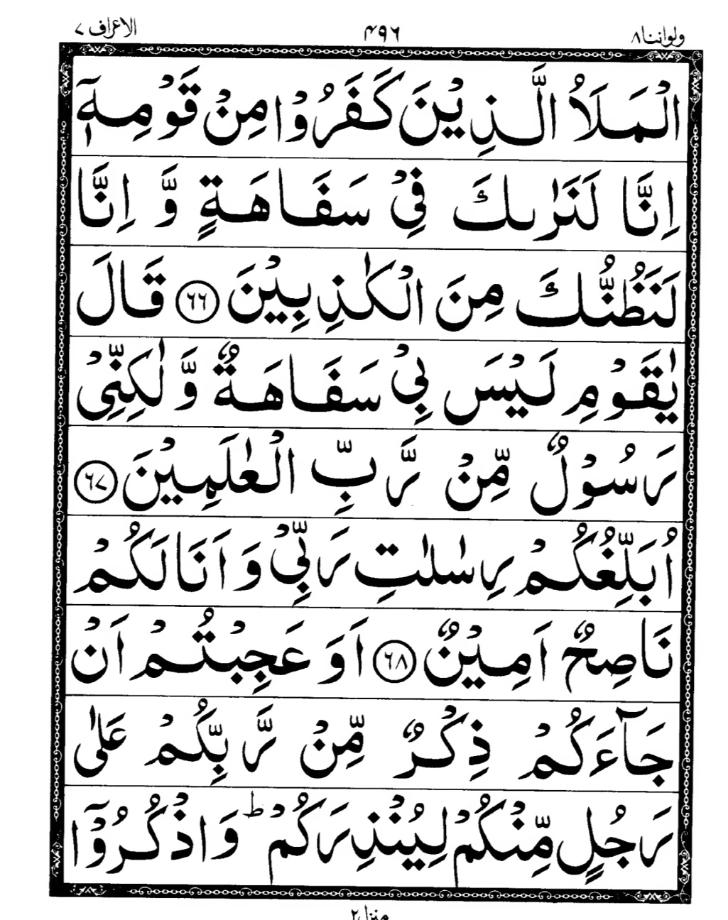 ولواننا ٨ ۴۹۶ الاعراف ٧
الْمَلَاُ الَّذِيْنَ كَفَرُوْا مِنْ قَوْمِهٖۤ
اِنَّا لَنَرٰىكَ فِيْ سَفَاهَةٍ وَّ اِنَّا
لَنَظُنُّكَ مِنَ الْكٰذِبِيْنَ ٦٦ قَالَ
يٰقَوْمِ لَيْسَ بِيْ سَفَاهَةٌ وَّ لٰكِنِّيْ
رَسُوْلٌ مِّنْ رَّبِّ الْعٰلَمِيْنَ ٦٧
اُبَلِّغُكُمْ رِسٰلٰتِ رَبِّيْ وَ اَنَا لَكُمْ
نَاصِحٌ اَمِيْنٌ ٦٨ اَوَ عَجِبْتُمْ اَنْ
جَآءَكُمْ ذِكْرٌ مِّنْ رَّبِّكُمْ عَلٰى
رَجُلٍ مِّنْكُمْ لِيُنْذِرَكُمْ ؕ وَ اذْكُرُوْۤا
منزل ٢